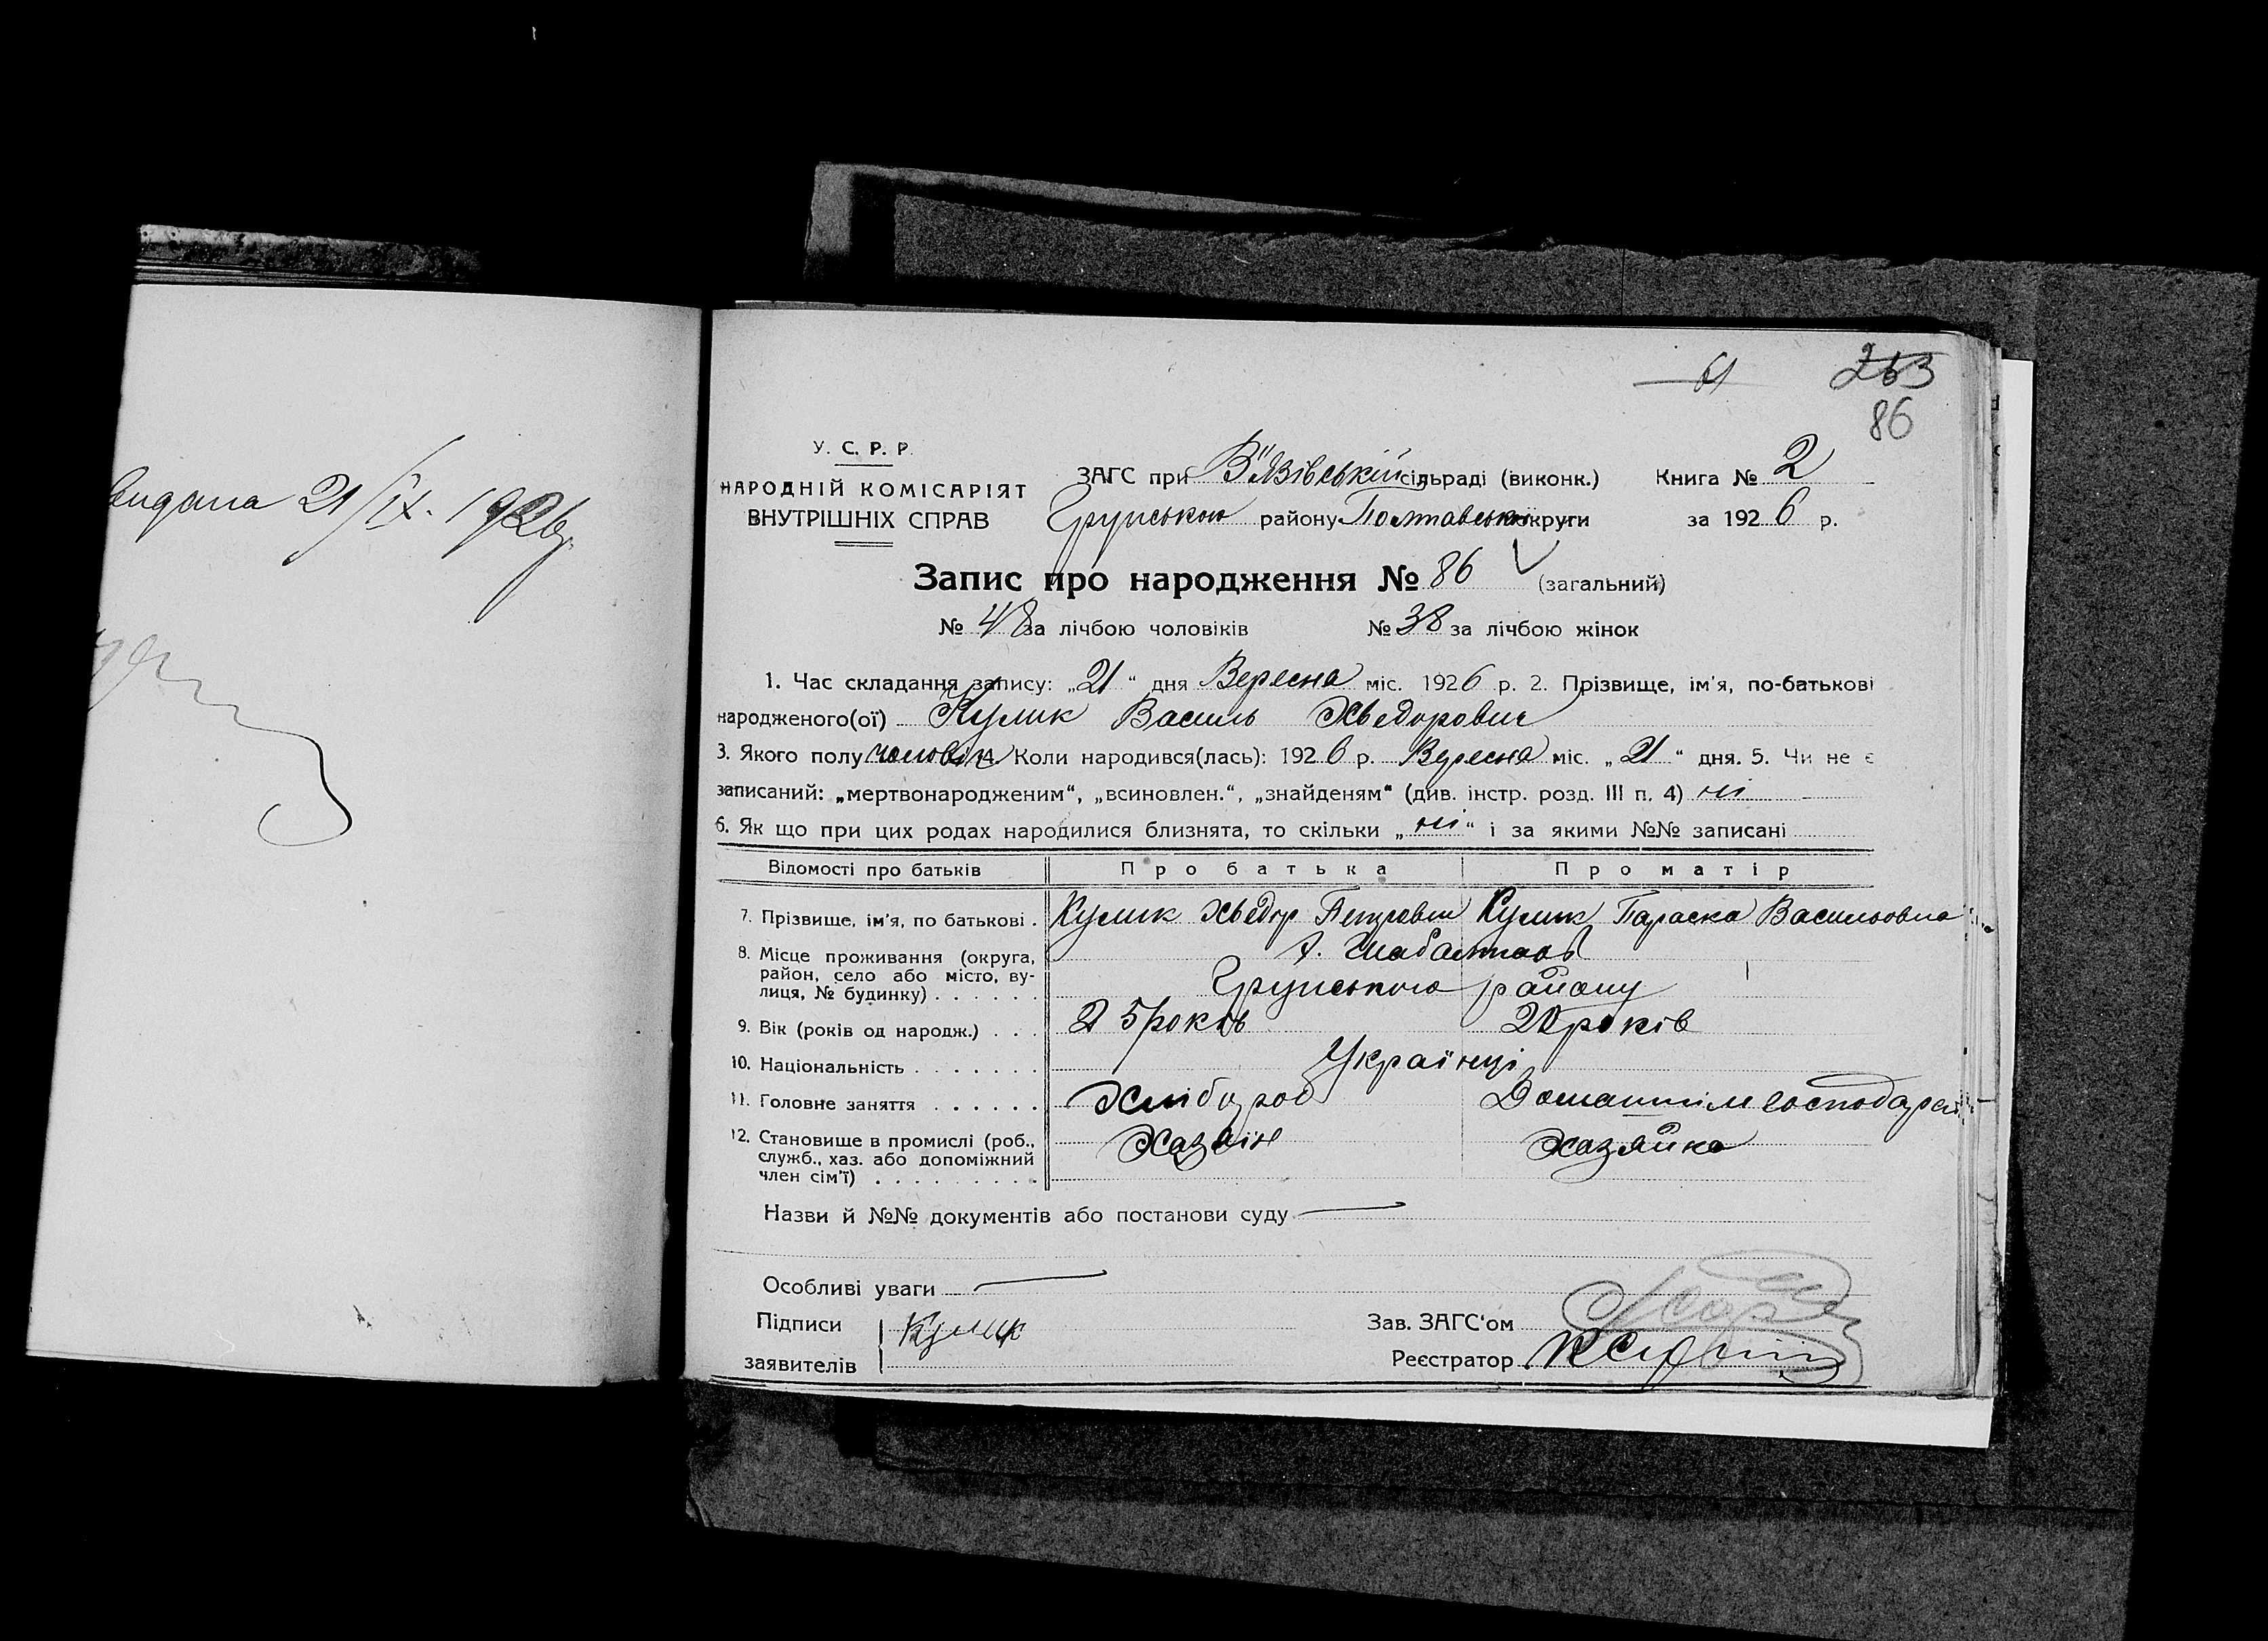 видана 21/IX. 1926 р.
61 263
86
У. С. Р. Р.
НАРОДНІЙ КОМІСАРІЯТ
ВНУТРІШНІХ СПРАВ
ЗАГС при В'язівській сільраді (виконк.) Книга № 2
Грунського району Полтавсько округи за 1926 р.
Запис про народження № 86 (загальний)
№ 48 за лічбою чоловіків № 38 за лічбою жінок
1. Час складання запису: „21“ дня Вересня міс. 1926 р. 2. Прізвище, ім'я, по-батькові
народженого(ої) Кулик Василь Хведорович
3. Якого полу чоловік 4. Коли народився(лась): 1926 р. Вересня міс. „21“ дня. 5. Чи не є
записаний: „мертвонародженим“, „всиновлен.“, „знайденям“ (див. інстр. розд. III п. 4) ні
6. Як що при цих родах народилися близнята, то скільки „ні“ і за якими №№ записані
Відомості про батьків Про батька Про матір
7. Прізвище, ім'я, по батькові . Кулик Хведір Петрович Кулик Параска Васильовна
8. Місце проживання (округа,
район, село або місто, ву-
лиця, № будинку) . . . . . . х.
Грунського району
9. Вік (років од народж.) . . . 25 років 20 років
10. Національність . . . . . . . Українці
11. Головне заняття . . . . . . Хлібороб Домашнім господарст
12. Становище в промислі (роб.,
служб., хаз. або допоміжний
член сім'ї) . . . . . . . . . Хазяїн Хазяйка
Назви й №№ документів або постанови суду —
Особливі уваги —
Підписи Кулик Зав. ЗАГС'ом
заявителів Реєстратор